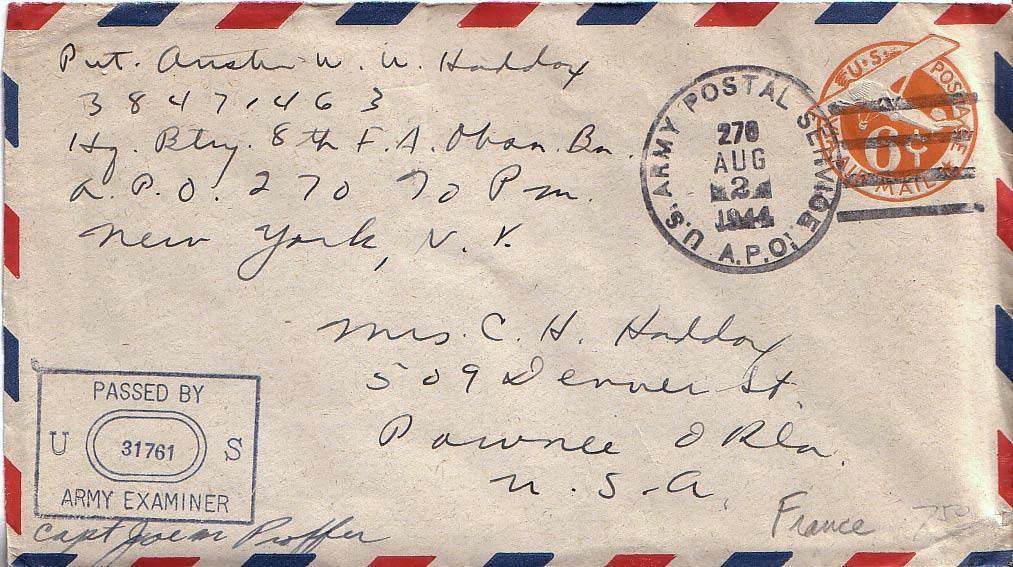 Pvt. Austin W. W. Haddox
38471463
Hq. Btry. 8th F. A. Obsn. Bn.
A. P. O. 270 % P m.
New York, N. Y.
U.S. ARMY POSTAL SERVICE A.P.O.
270
AUG
2
1944
U.S. POSTAGE
6¢
AIR MAIL
Mrs. C. H. Haddox
509 Denver St.
Pawnee Okla.
U. S. A.
PASSED BY
U 31761 S
ARMY EXAMINER
Capt Proffer
France
750